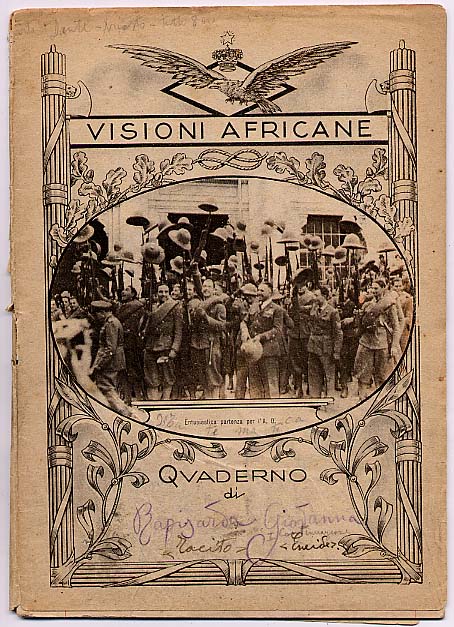 Dante
VISIONI AFRICANE
Entusiastica partenza per l'A. O.
QVADERNO
di
Giovanna
Tacito -